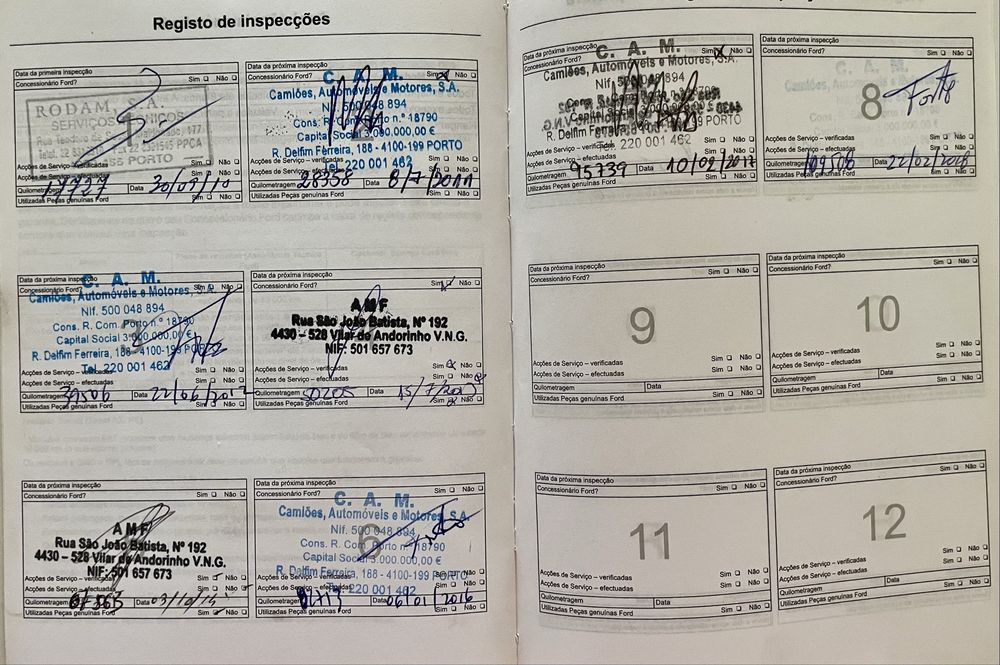 Registo de inspecções
Data da primeira inspecção
Concessionário Ford? Sim Não
RODAM, S.A.
SERVIÇOS TÉCNICOS
PORTO
Acções de Serviço – verificadas
Acções de Serviço – efectuadas Sim Não
Quilometragem Data Sim Não
Utilizadas Peças genuínas Ford Sim Não
Data da próxima inspecção
Concessionário Ford? Sim Não
C. A. M.
Camiões, Automóveis e Motores, S.A.
Nif. 500 048 894
Cons. R. Com. Porto n.º 18790
Capital Social 3.000.000,00 €
R. Delfim Ferreira, 188 - 4100-199 PORTO
Tel. 220 001 462
Acções de Serviço – verificadas
Acções de Serviço – efectuadas Sim Não
Quilometragem 28358 Data 8/7/2011 Sim Não
Utilizadas Peças genuínas Ford Sim Não
Data da próxima inspecção
Concessionário Ford?
3
C. A. M.
Camiões, Automóveis e Motores, S.A.
Nif. 500 048 894
Cons. R. Com. Porto n.º 18790
Capital Social 3.000.000,00 €
R. Delfim Ferreira, 188 - 4100-199 PORTO
Tel. 220 001 462
Acções de Serviço – verificadas
Acções de Serviço – efectuadas Sim Não
Quilometragem 39506 Data 22/06/2012 Sim Não
Utilizadas Peças genuínas Ford Sim Não
Data da próxima inspecção
Concessionário Ford? Sim Não
AMF
Rua São João Batista, Nº 192
4430 – 528 Vilar de Andorinho V.N.G.
NIF: 501 657 673
Acções de Serviço – verificadas Sim Não
Acções de Serviço – efectuadas Sim Não
Quilometragem 50205 Data 15/7/20
Utilizadas Peças genuínas Ford Sim Não
Data da próxima inspecção
Concessionário Ford? Sim Não
AMF
Rua São João Batista, Nº 192
4430 – 528 Vilar de Andorinho V.N.G.
NIF: 501 657 673
Acções de Serviço – verificadas
Acções de Serviço – efectuadas Sim Não
Quilometragem Data 03/10/14 Sim Não
Utilizadas Peças genuínas Ford Sim Não
Data da próxima inspecção
Concessionário Ford? Sim Não
6
C. A. M.
Camiões, Automóveis e Motores, S.A.
Nif. 500 048 894
Cons. R. Com. Porto n.º 18790
Capital Social 3.000.000,00 €
R. Delfim Ferreira, 188 - 4100-199 PORTO
Tel. 220 001 462
Acções de Serviço – verificadas Sim Não
Acções de Serviço – efectuadas Sim Não
Quilometragem Data 06/01/2016 Sim Não
Utilizadas Peças genuínas Ford Sim Não
Data da próxima inspecção
Concessionário Ford? Sim Não
C. A. M.
Camiões, Automóveis e Motores, S.A.
Nif. 500 048 894
Capital Social
R. Delfim Ferreira, 188 - 4100-199 PORTO
Tel. 220 001 462
Acções de Serviço – verificadas
Acções de Serviço – efectuadas Sim Não
Quilometragem 95739 Data 10/09/2017 Sim Não
Utilizadas Peças genuínas Ford Sim Não
Data da próxima inspecção
Concessionário Ford? Sim Não
8
Acções de Serviço – verificadas Sim Não
Acções de Serviço – efectuadas Sim Não
Quilometragem Data Sim Não
Utilizadas Peças genuínas Ford Sim Não
Data da próxima inspecção
Concessionário Ford? Sim Não
9
Acções de Serviço – verificadas Sim Não
Acções de Serviço – efectuadas Sim Não
Quilometragem Data
Utilizadas Peças genuínas Ford Sim Não
Data da próxima inspecção
Concessionário Ford? Sim Não
10
Acções de Serviço – verificadas Sim Não
Acções de Serviço – efectuadas Sim Não
Quilometragem Data
Utilizadas Peças genuínas Ford Sim Não
Data da próxima inspecção
Concessionário Ford? Sim Não
11
Acções de Serviço – verificadas Sim Não
Acções de Serviço – efectuadas Sim Não
Quilometragem Data
Utilizadas Peças genuínas Ford Sim Não
Data da próxima inspecção
Concessionário Ford? Sim Não
12
Acções de Serviço – verificadas Sim Não
Acções de Serviço – efectuadas Sim Não
Quilometragem Data
Utilizadas Peças genuínas Ford Sim Não